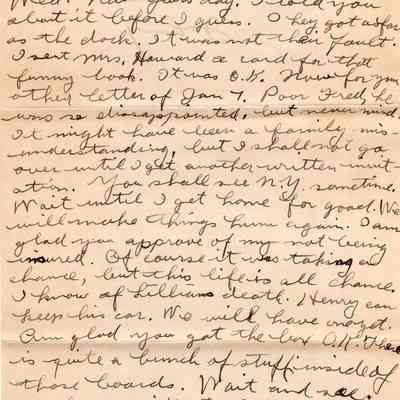 Wed. New Years day. I told you
about it before I guess. They got as far
as the dock. It was not their fault.
I sent Mrs. Howard a card for that
funny book. It was O.K. Now for your
other letter of Jan 7. Poor Fred, he
was so disappointed, but never mind.
It might have been a family mis-
understanding, but I shall not go
over until I get another written invit-
ation. You shall see N.Y. sometime.
Wait until I get home for good. We
will make things hum again. I am
glad you approve of my not being
insured. Of course it was taking a
chance, but this life is all chance.
I know of Lillians death. Henry can
keep his car. We will have one yet.
Am glad you got the box O.K. There
is quite a bunch of stuff inside of
those boards. Wait and see.